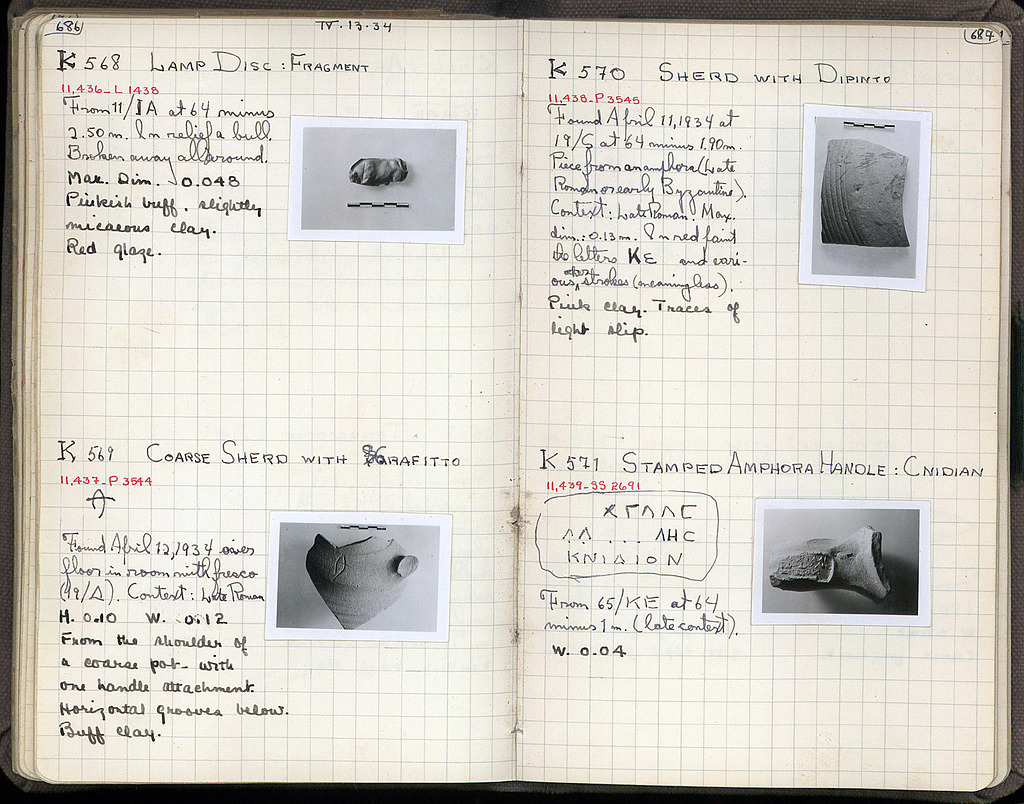 686
IV.13.34
K 568 LAMP DISC : FRAGMENT
11,436 - L 1438
From 11/ΙΑ at 64 minus
2.50 m. In relief a bull.
Broken away all around.
Max. Dim. 0.048
Pinkish buff, slightly
micaceous clay.
Red glaze.
K 569 COARSE SHERD WITH GRAFITTO
11,437 - P 3544
Found April 12, 1934 over
floor in room with fresco
(19/Δ). Context: Late Roman
H. 0.10 W. 0.12
From the shoulder of
a coarse pot - with
one handle attachment.
Horizontal grooves below.
Buff clay.
687
K 570 SHERD WITH DIPINTO
11,438 - P 3545
Found April 11, 1934 at
19/ς at 64 minus 1.90 m.
Piece from an amphora (Late
Roman or early Byzantine).
Context: Late Roman. Max.
dim.: 0.13 m. In red paint
the letters ΚΕ and vari-
ous other strokes (meaningless).
Pink clay. Traces of
light slip.
K 571 STAMPED AMPHORA HANDLE : CNIDIAN
11,439 - SS 2691
ΛΛ ... ΛΗC
ΚΝΙΔΙΟΝ
From 65/ΚΕ at 64
minus 1 m. (late context).
W. 0.04